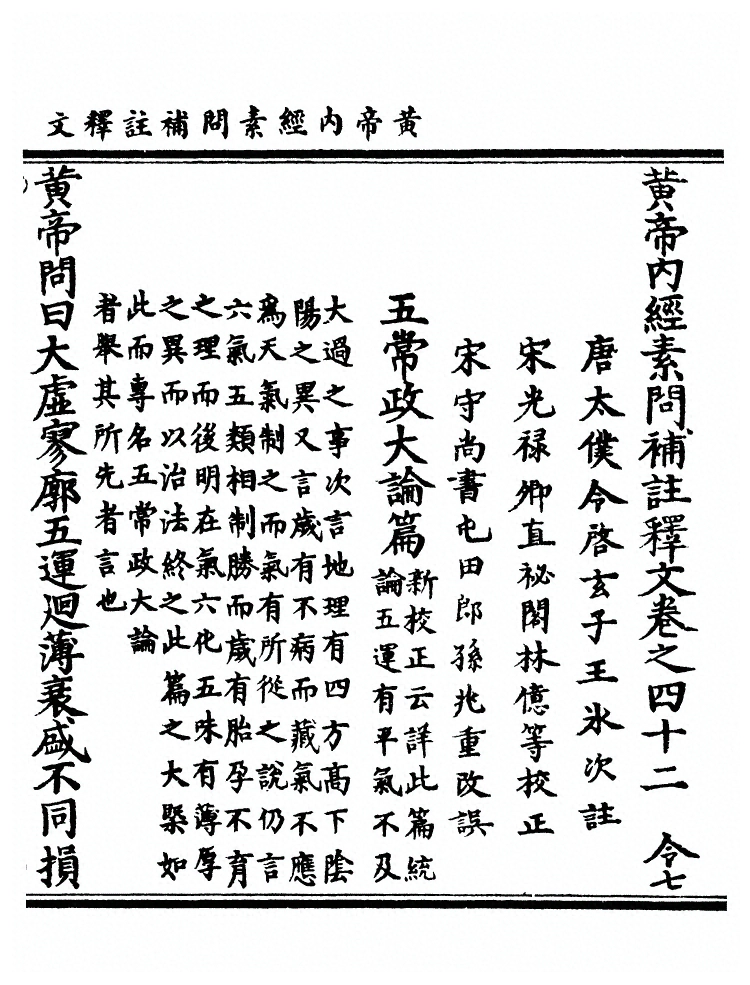 黃帝內經素問補註釋文
黃帝內經素問補註釋文卷之四十二　令七
唐太僕令啓玄子王氷次註
宋光祿卿直祕閣林億等校正
宋守尚書屯田郎孫兆重改誤
五常政大論篇
新校正云詳此篇統
論五運有平氣不及
大過之事次言地理有四方高下陰
陽之異又言歲有不病而藏氣不應
爲天氣制之而氣有所從之說仍言
六氣五類相制勝而歲有胎孕不育
之理而後明在氣六化五味有薄厚
之異而以治法終之此篇之大槩如
此而專名五常政大論
者舉其所先者言也
黃帝問曰大虛寥廓五運迴薄衰盛不同損